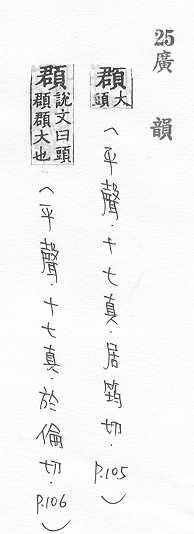 25廣韻
頵大頭（平聲．十七真．居筠切．P.105）
頵說文曰頭頵頵大也（平聲．十七真．於倫切．P.106）